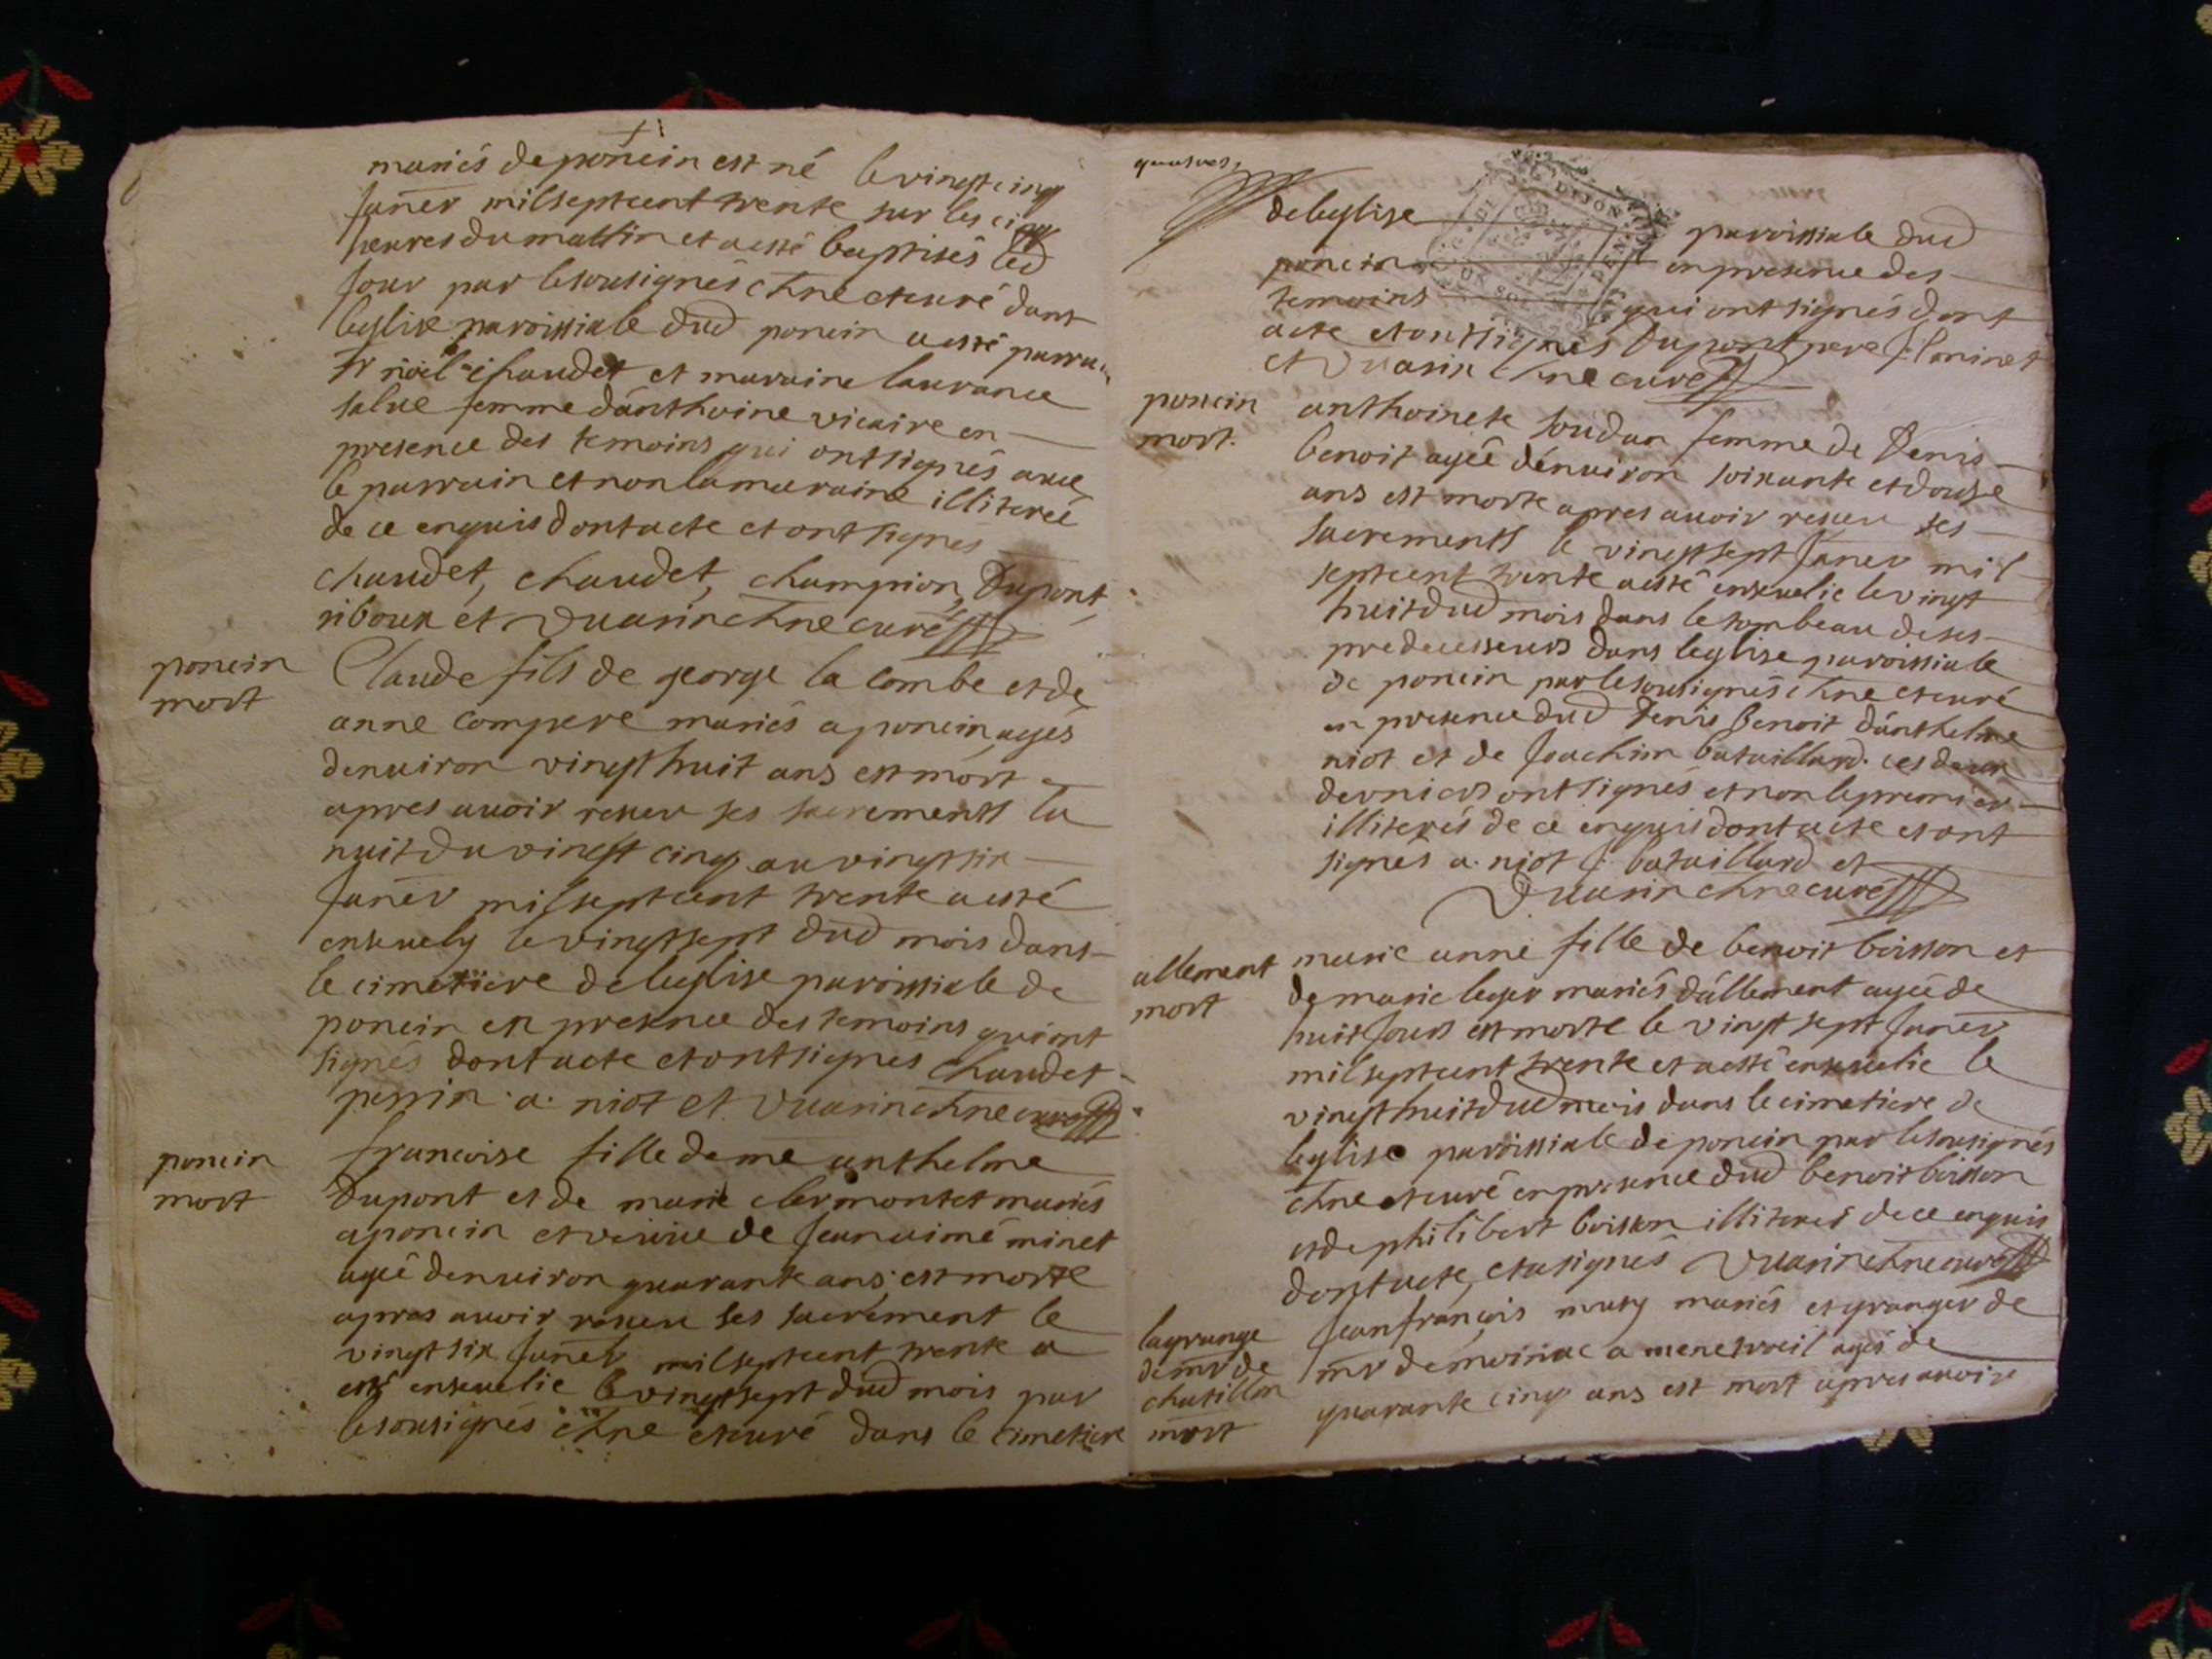 mariés de poncin est né le vingt cinq
Janer mil sept cent trente sur les cinq
heures du mattin et a esté baptisés led
Jour par le sousignés chne et curé dans
leglise paroissiale dud poncin a esté parrain
Sr nöel chaudet et maraine laurance
salue femme d'anthoine vicaire en
presence des temoins qui ont signés auec
le parrain et non la maraine illiterée
de ce enquis dont acte et ont signes
chaudet, chaudet, champion, Dupont,
riboux et Vuarin chne curé
poncin
mort
Claude fils de george la Combe et de
anne compere mariés a poncin agés
denuiron vingt huit ans est mort
apres auoir receu ses sacrements la
nuit du vingt cinq au vingt six
Janer mil sept cent trente a esté
enseuely le vingt sept dud mois dans
le cimetiere de leglise paroissiale de
poncin en presence des temoins qui ont
signés dont acte et ont signes Chaudet
perrin a. niot et Vuarin chne curé
poncin
mort
francoise fille de me anthelme
Dupont et de marie clermontet mariés
a poncin et veuue de Jean aimé minet
agée denuiron quarante ans est morte
apres auoir receu ses sacrement le
vingt six Janer mil sept cent trente a
esté enseuelie le vingt sept dud mois par
le sousignés chne et curé dans le cimetiere
de leglise paroissiale dud
poncin en presence des
temoins qui ont signés dont
acte et ont signés Dupont pere J: l minet
et Vuarin chne curé
poncin
mort.
anthoinete soudan femme de Denis
benoit agée d'enuiron soixante et douse
ans est morte apres auoir receu ses
sacrements le vingt sept Janer mil
sept cent trente a esté enseuelie le vingt
huit dud mois dans le tombeau de ses
predecesseurs dans leglise paroissiale
de poncin par le sousignés chne et curé
en presence dud Denis Benoit d'anthelme
niot et de Joachim bataillard. ces deux
derniers ont signés et non le premier
illiterés de ce enquis dont acte et ont
signés a. niot J: bataillard et
Vuarin chne curé
allement
mort
marie anne fille de benoit boisson et
de marie leger mariés d'allement agée de
huit Jours est morte le vingt sept Janer
mil sept cent trente et a esté enseuelie le
vingt huit dud mois dans le cimetiere de
leglise paroissiale de poncin par le sousignés
chne et curé en presence dud benoit boisson
et de philibert boisson illiterés de ce enquis
dont acte, et a signés Vuarin chne curé
lagrange
de mr de
chatillon
mort
Jean françois mury mariés et granger de
mr de moiriac a menetrueil agés de
quarante cinq ans est mort apres auoir